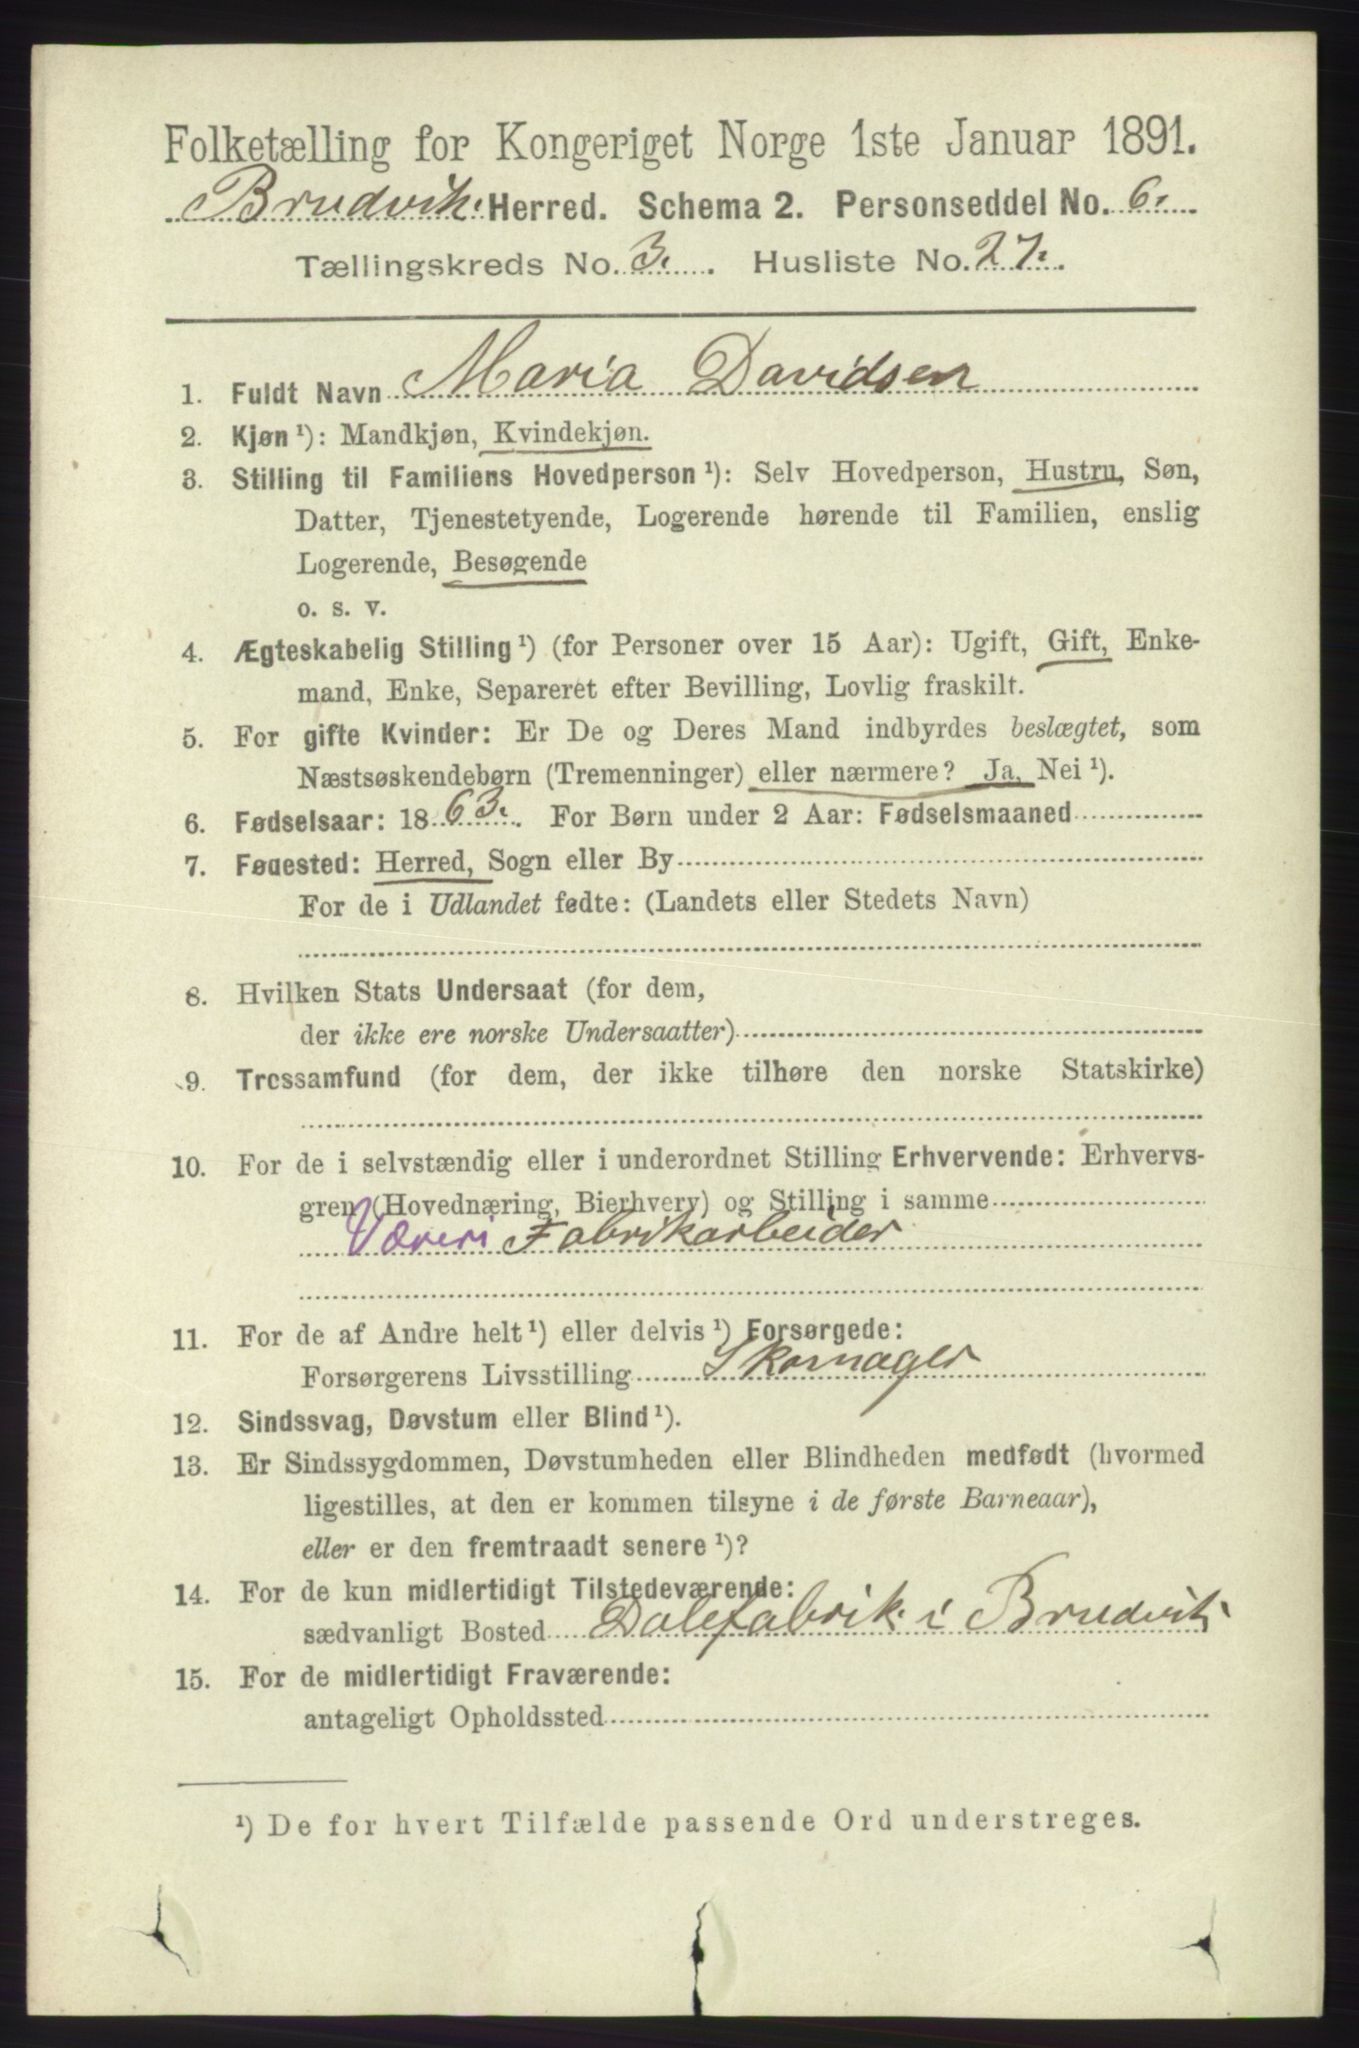 Folketælling for Kongeriget Norge 1ste Januar 1891.
Brudvik Herred. Schema 2. Personseddel No. 6.
Tællingskreds No. 3. Husliste No. 27.
1. Fuldt Navn Maria Davidsen
2. Kjøn ¹): Mandkjøn, Kvindekjøn.
3. Stilling til Familiens Hovedperson ¹): Selv Hovedperson, Hustru, Søn,
Datter, Tjenestetyende, Logerende hørende til Familien, enslig
Logerende, Besøgende
o. s. v.
4. Ægteskabelig Stilling ¹) (for Personer over 15 Aar): Ugift, Gift, Enke-
mand, Enke, Separeret efter Bevilling, Lovlig fraskilt.
5. For gifte Kvinder: Er De og Deres Mand indbyrdes beslægtet, som
Næstsøskendebørn (Tremenninger) eller nærmere? Ja, Nei ¹).
6. Fødselsaar: 1863. For Børn under 2 Aar: Fødselsmaaned
7. Føuested: Herred, Sogn eller By
For de i Udlandet fødte: (Landets eller Stedets Navn)
8. Hvilken Stats Undersaat (for dem,
der ikke ere norske Undersaatter)
9. Trossamfund (for dem, der ikke tilhøre den norske Statskirke)
10. For de i selvstændig eller i underordnet Stilling Erhvervende: Erhvervs-
gren (Hovednæring, Bierhverv) og Stilling i samme
Væveri Fabrikarbeider
11. For de af Andre helt ¹) eller delvis ¹) Forsørgede:
Forsørgerens Livsstilling Skomager
12. Sindssvag, Døvstum eller Blind ¹).
13. Er Sindssygdommen, Døvstumheden eller Blindheden medfødt (hvormed
ligestilles, at den er kommen tilsyne i de første Barneaar),
eller er den fremtraadt senere ¹)?
14. For de kun midlertidigt Tilstedeværende:
sædvanligt Bosted Dalefabrik i Brudvik
15. For de midlertidigt Fraværende:
antageligt Opholdssted
¹) De for hvert Tilfælde passende Ord understreges.